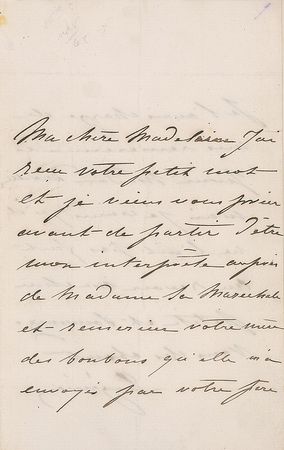 Ma chère Madeleine J'ai
recu votre petit mot
et je viens vous prier
avant de partir d'être
mon interprète auprès
de Madame la Maréchale
et remercier votre mère
des bonbons qu'elle m'a
envoyés par votre père